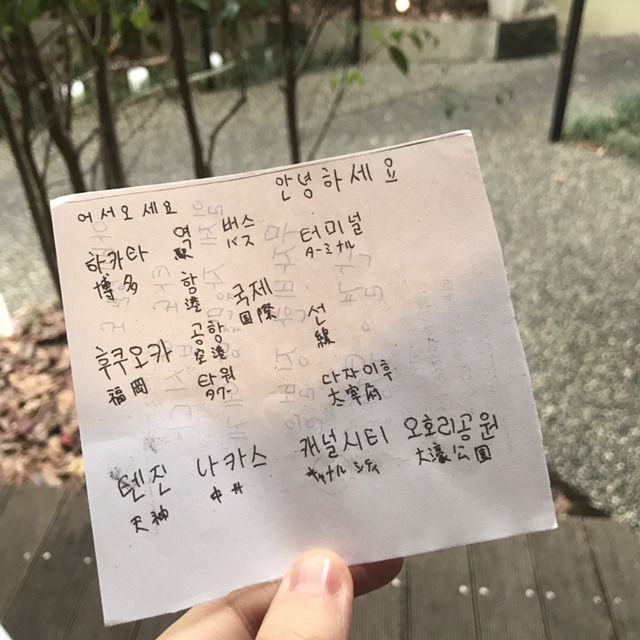 안녕하세요
어서오세요
역 버스 터미널
駅 バス ターミナル
하카타 항 국제 선
博多 港 国際 線
후쿠오카 공항
福岡 空港
타워 다자이후
タワー 太宰府
텐진 나카스 캐널시티 오호리공원
天神 中州 キャナルシティ 大濠公園